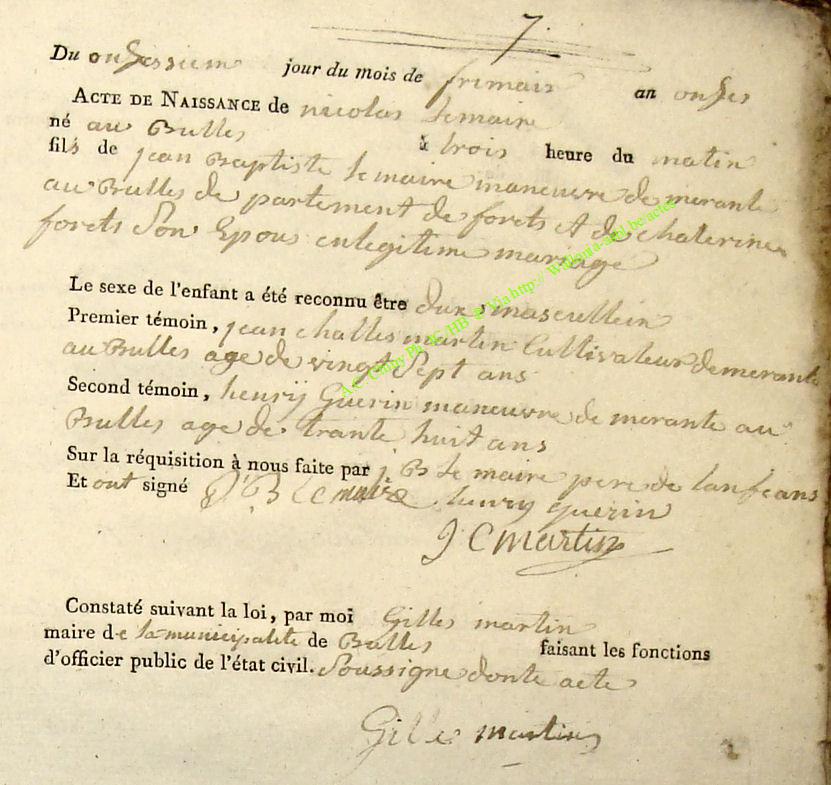 7.
Du onsessiem jour du mois de frimair an onses
ACTE DE NAISSANCE de nicolas Lemaire
né au Bulles à trois heure du matin
fils de jean Baptiste Lemaire maneuvre demerante
au Bulles de partement de forets et de chaterine
forets Son Epous enlegitime mariage
Le sexe de l'enfant a été reconnu être dux masculein
Premier témoin, jean challes martin Cultivateur demerante
au Bulles age de vingt Sept ans
Second témoin, henry Guerin maneuvre de merante au
Bulles age de trante huit ans
Sur la réquisition à nous faite par j B Le maire pere de lanfeans
Et ont signé J B Lemaire henry guerin
J C martin
Constaté suivant la loi, par moi Gilles martin
maire de la municipalite de Bulles faisant les fonctions
d'officier public de l'état civil. Soussigne donte acte
Gilles martin